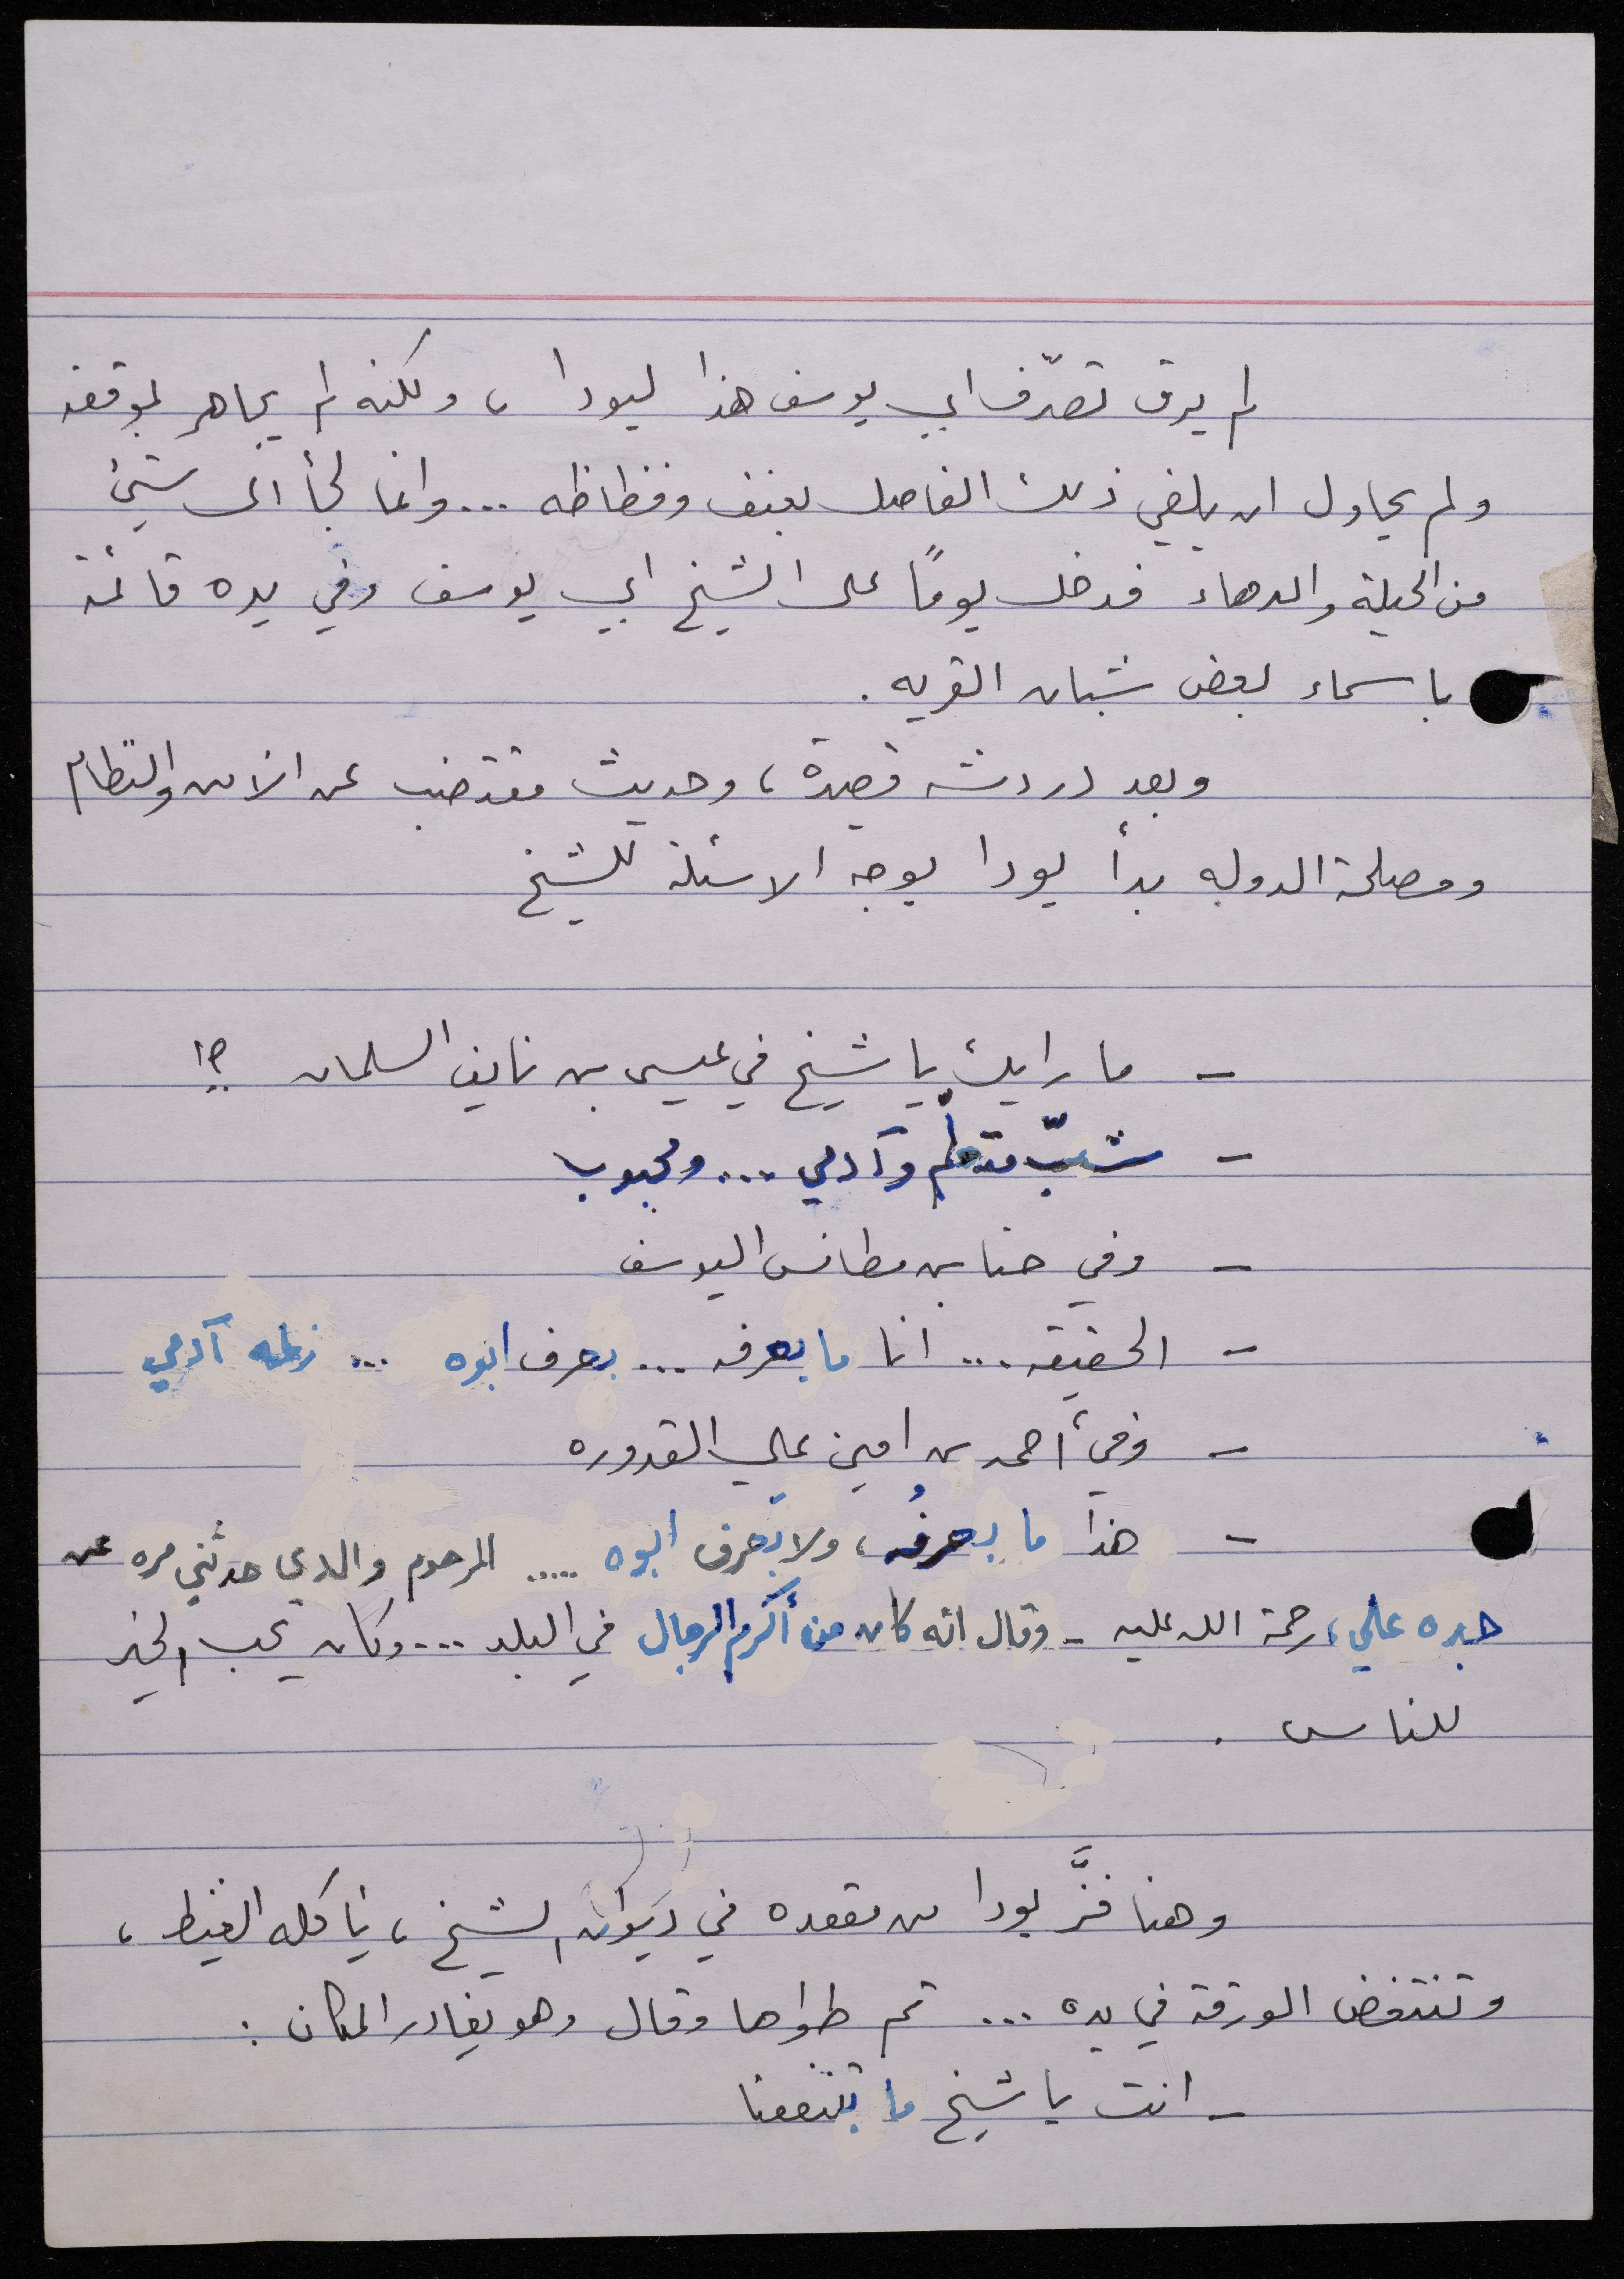 لم يرق تصرّف ابي يوسف هذا ليودا ، ولكنه لم يجاهر بموقفه
ولم يحاول ان يلغي ذلك الفاصل بعنف وفظاظه ... وانما لجأ الى شيئ
من الحيلة والدهاء فدخل يومًا على الشيخ ابي يوسف وفي يده قائمة
باسماء بعض شبان القريه .
وبعد دردشه قصيرة ، وحديث مقتضب عن الامن والنظام
ومصلحة الدوله بدأ يودا يوجه الاسئلة للشيخ
- ما رايك يا شيخ في عيسى بن نايف السلمان ؟!
- شبّ متعلّم وآدمي ... ومحبوب
- وفي حنا بن مطانس اليوسف
- الحقيقه ... انا ما بعرفه ... بعرف ابوه ... زلمه آدمي
- وفي أحمد بن امين علي القدوره
- هذا ما بعرفُه ، ولا بعرف ابوه ..... المرحوم والدي حدثني مره عن
جده علي ، رحمة الله عليه - وقال انه كان من أكرم الرجال في البلد ... وكان يحب الخير
للناس .
وهنا فزَّ يودا من مقعده في ديوان الشيخ ، يأكله الغيظ ،
وتنتفض الورقة في يده ... ثم طواها وقال وهو يغادر المكان :
- انت يا شيخ ما بتنفعنا